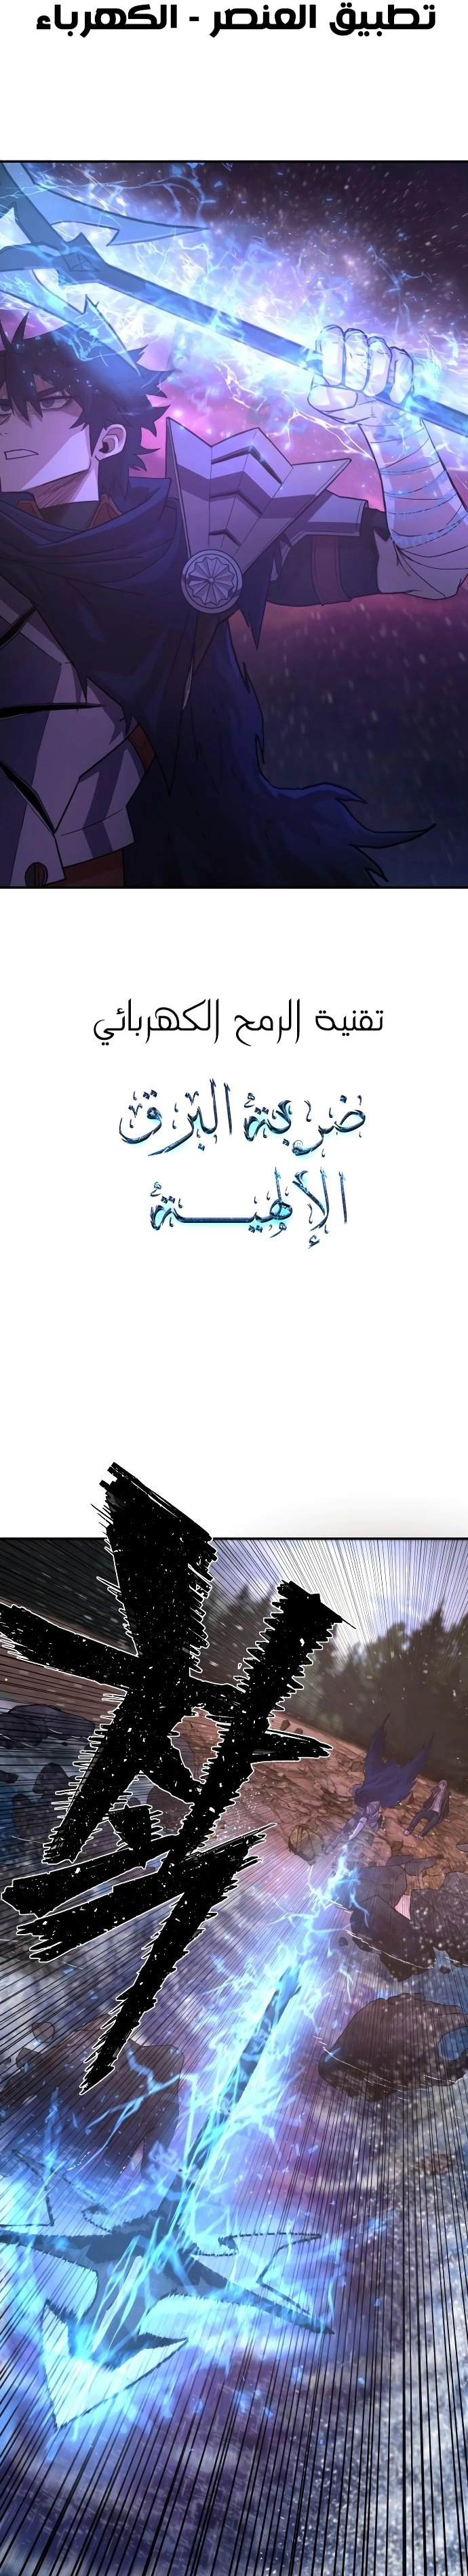 تطبيق العنصر - الكهرباء
تقنية الرمح الكهربائي
ضربة البرق
الإلهية